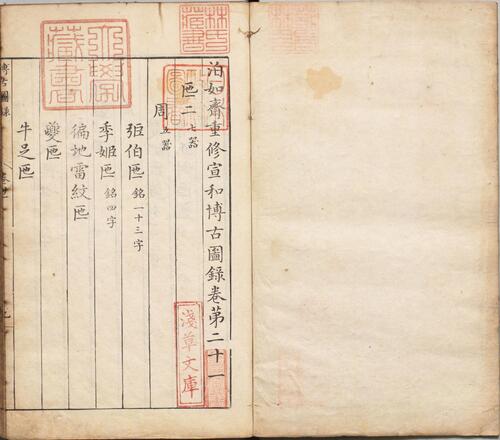 泊如齋重修宣和博古圖錄卷第二十一
匜二 七器
周 五器
弡伯匜 銘一十三字
季姬匜 銘四字
徧地雷紋匜
夔匜
牛足匜
淺草文庫
林氏藏書